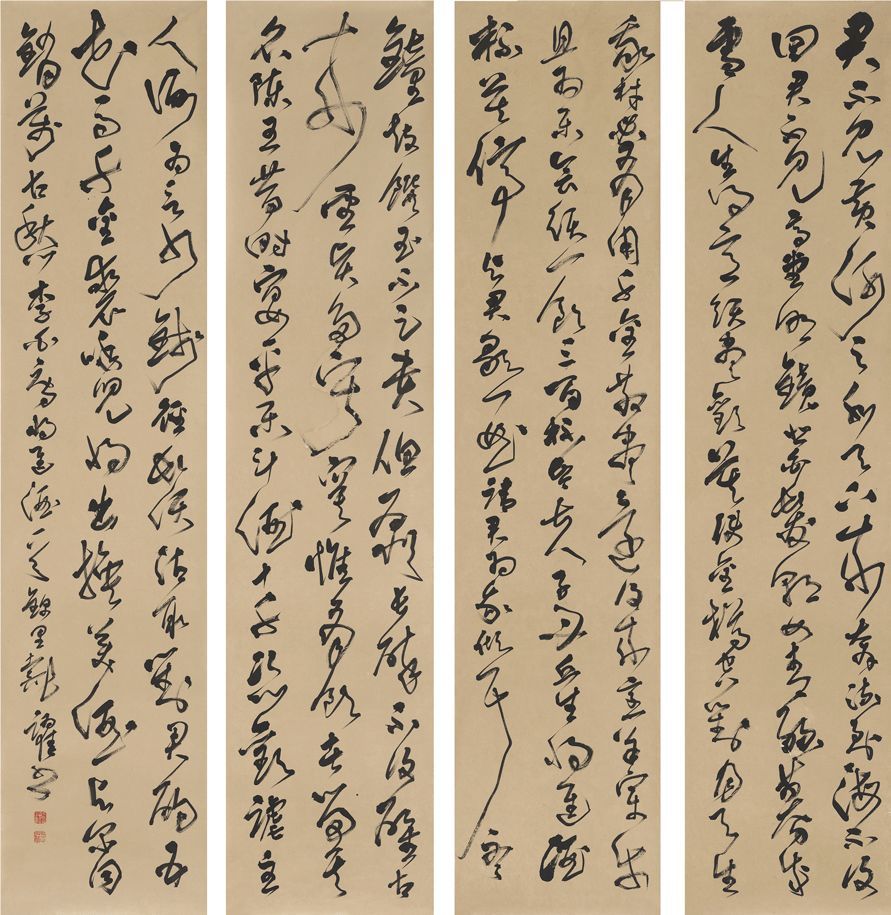 君不見黃河之水天上來奔流到海不復
回君不見高堂明鏡悲白髮朝如青絲暮成
雪人生得意須盡歡莫使金樽空對月天生
我材必有用千金散盡還復來烹羊宰牛
且為樂會須一飲三百杯岑夫子丹丘生將進酒
杯莫停與君歌一曲請君為我傾耳聽
鐘鼓饌玉不足貴但願長醉不復醒古
來聖賢皆寂寞惟有飲者留其
名陳王昔時宴平樂斗酒十千恣歡謔主
人何為言少錢徑須沽取對君酌五
花馬千金裘呼兒將出換美酒與爾同
銷萬古愁 李白詩將進酒一首 錦里戴躍書